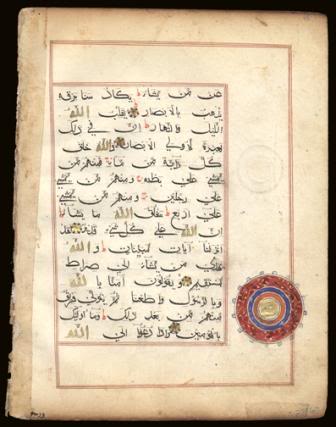 عن من يشاء يكاد سنا برقه
يذهب بالابصار يقلب الله
الليل والنهار ان في ذلك
لعبرة لاولي الابصار والله خلق
كل دابة من ماء فمنهم من يمشي
على بطنه ومنهم من يمشي
على رجلين ومنهم من يمشي
على اربع يخلق الله ما يشاء
ان الله على كل شيء قدير لقد
انزلنا آيات مبينات والله
يهدي من يشاء الى صراط
مستقيم ويقولون آمنا بالله
وبالرسول واطعنا ثم يتولى فريق
منهم من بعد ذلك وما اولئك
بالمؤمنين واذا دعوا الى الله